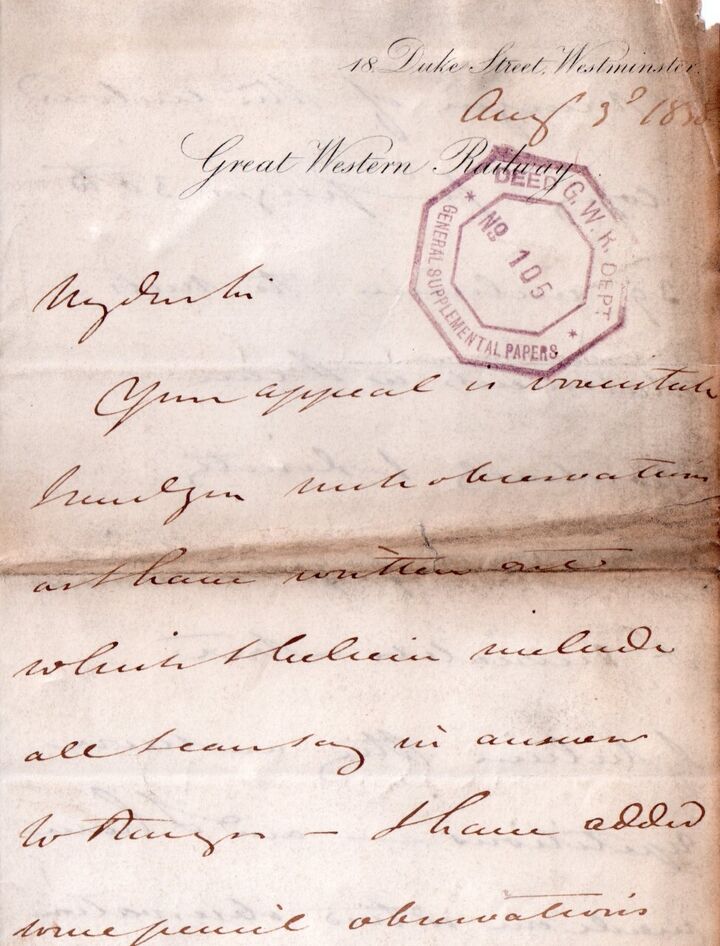 18 Duke Street, Westminster.
Aug 3d 18
Great Western Railway
DEED G.W.R. DEPT
GENERAL SUPPLEMENTAL PAPERS
No 105
My dear Sir
Your appeal is
I send you such observations
as I have written out
which I believe include
all I can say in answer
to – I have added
some pencil observations